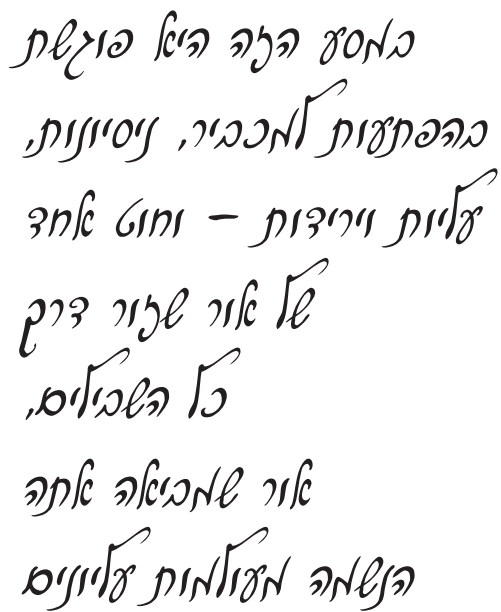 במסע הזה היא פוגשת
בהפתעות למכביר, ניסיונות,
עליות וירידות – וחוט אחד
של אור שזור דרך
כל השבילים,
אור שמביאה אתה
הנשמה מעולמות עליונים